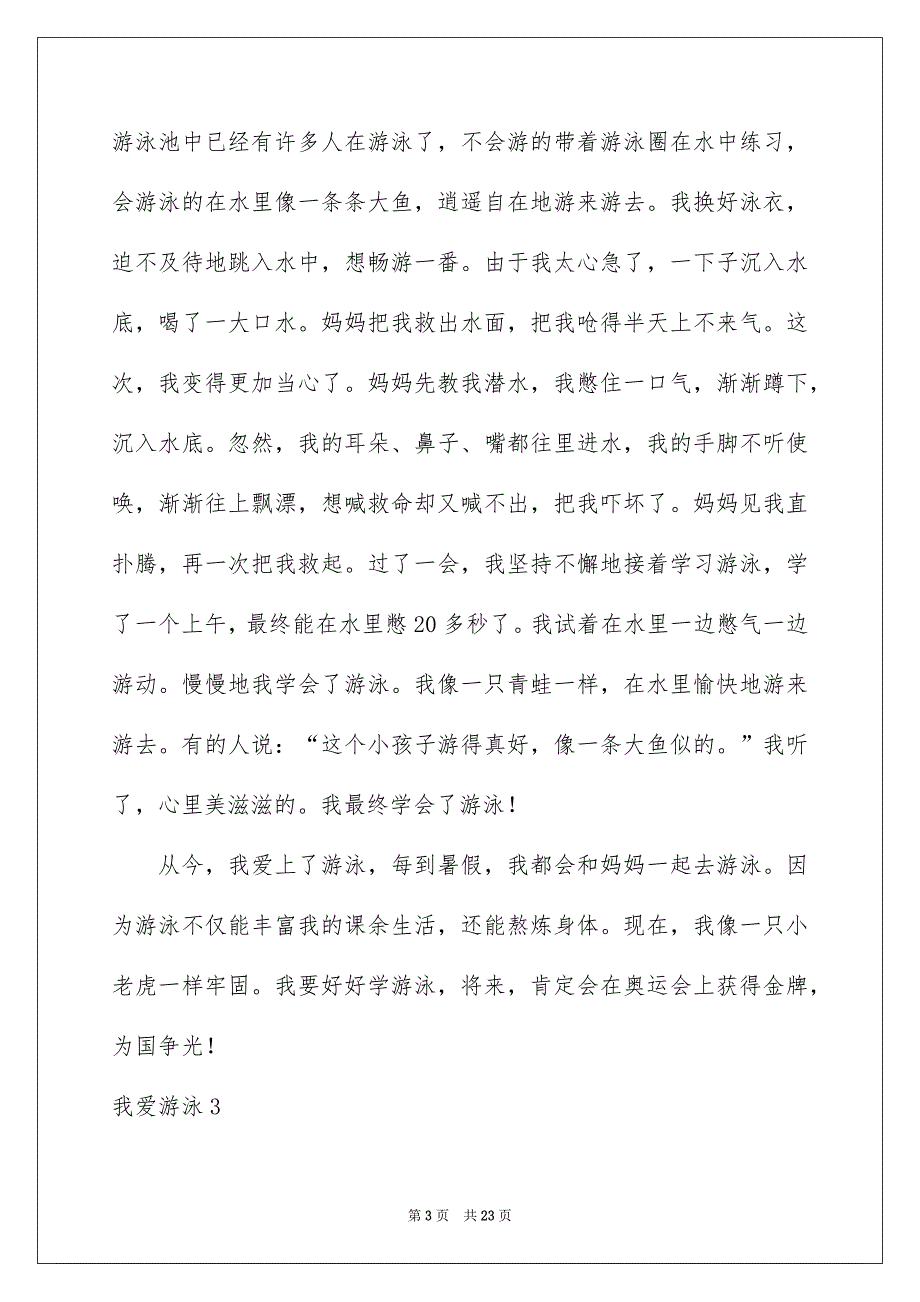 游泳池中已经有许多人在游泳了，不会游的带着游泳圈在水中练习，
会游泳的在水里像一条条大鱼，逍遥自在地游来游去。我换好泳衣，
迫不及待地跳入水中，想畅游一番。由于我太心急了，一下子沉入水
底，喝了一大口水。妈妈把我救出水面，把我呛得半天上不来气。这
次，我变得更加当心了。妈妈先教我潜水，我憋住一口气，渐渐蹲下，
沉入水底。忽然，我的耳朵、鼻子、嘴都往里进水，我的手脚不听使
唤，渐渐往上飘漂，想喊救命却又喊不出，把我吓坏了。妈妈见我直
扑腾，再一次把我救起。过了一会，我坚持不懈地接着学习游泳，学
了一个上午，最终能在水里憋 20 多秒了。我试着在水里一边憋气一边
游动。慢慢地我学会了游泳。我像一只青蛙一样，在水里愉快地游来
游去。有的人说：“这个小孩子游得真好，像一条大鱼似的。”我听
了，心里美滋滋的。我最终学会了游泳！
从今，我爱上了游泳，每到暑假，我都会和妈妈一起去游泳。因
为游泳不仅能丰富我的课余生活，还能熬炼身体。现在，我像一只小
老虎一样牢固。我要好好学游泳，将来，肯定会在奥运会上获得金牌，
为国争光！
我爱游泳 3
第 3 页 共 23 页